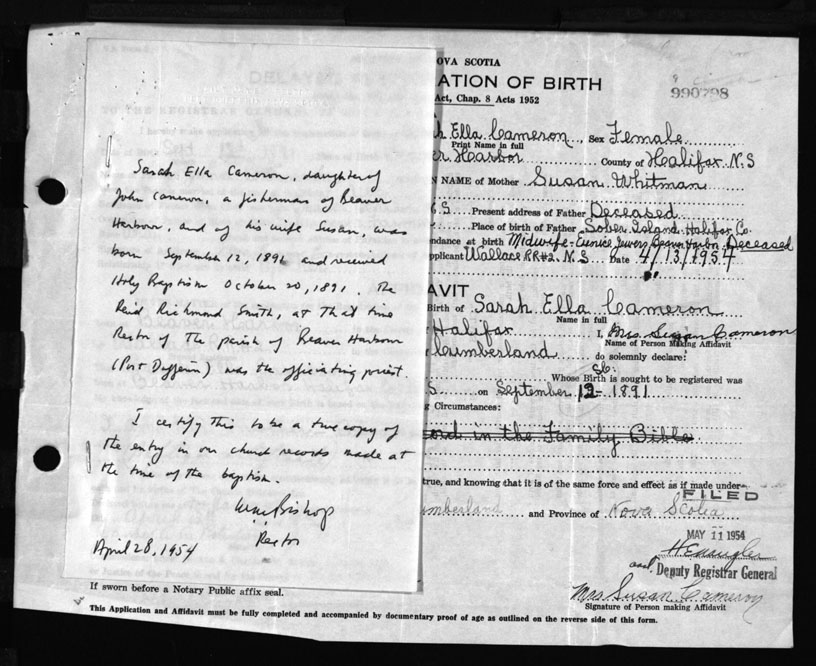 Sarah Ella Cameron, daughter of
John Cameron, a fisherman of Beaver
Harbour, and of his wife Susan, was
born September 12, 1891 and received
Holy Baptism October 20, 1891. The
Reid Richmond Smith, at that time
Rector of the parish of Beaver Harbour
(Port Dufferin) was the officiating priest.
I certify this to be a true copy of
the entry in our church records made at
the time of the baptism.
Wm Bishop
Rector
April 28, 1954
OVA SCOTIA
ATION OF BIRTH
Act, Chap. 8 Acts 1952
990798
h Ella Cameron, Sex Female
Print Name in full
er Harbor County of Halifax N.S
N NAME of Mother Susan Whitman
S Present address of Father Deceased
Place of birth of Father Sober Island Halifax Co.
ndance at birth Midwife - Eunice Jewers Beaver Harbor Deceased
pplicant Wallace RR#2. N.S Date 4/13/1954
AVIT
Birth of Sarah Ella Cameron
Name in full
Halifax I, Mrs. Susan Cameron
Name of Person Making Affidavit
Cumberland do solemnly declare:
Whose Birth is sought to be registered was
S. on September 12 - 1891
g Circumstances:
ord in the Family Bible
true, and knowing that it is of the same force and effect as if made under
FILED
umberland and Province of Nova Scotia
MAY 11 1954
Deputy Registrar General
Mrs Susan Cameron
If sworn before a Notary Public affix seal.
Signature of Person making Affidavit
This Application and Affidavit must be fully completed and accompanied by documentary proof of age as outlined on the reverse side of this form.